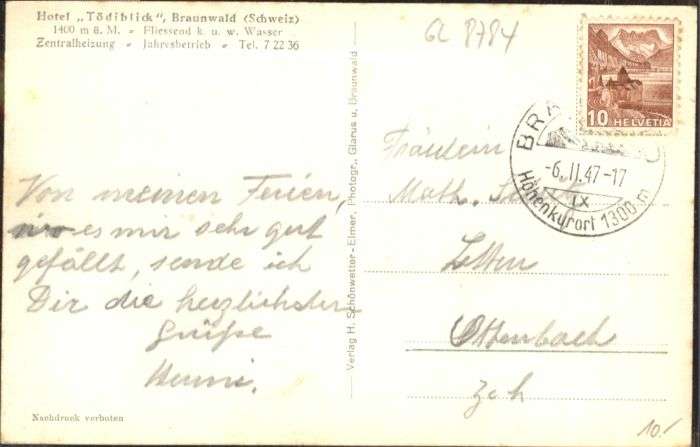 Hotel „Tödiblick", Braunwald (Schweiz)
1400 m ü. M. - Fliessend k. u. w. Wasser
Zentralheizung - Jahresbetrieb - Tel. 7 22 36
GL 8784
10 HELVETIA
BRA
-6.II.47-17
IX
Höhenkurort 1300 m
Von meinen Ferien,
wo es mir sehr gut
gefällt, sende ich
Dir die herzlichsten
Grüße
Verlag H. Schönwetter-Elmer, Photogr., Glarus u. Braunwald
Fräulein
Math.
Letten
Ottenbach
Zch
Nachdruck verboten
10.-